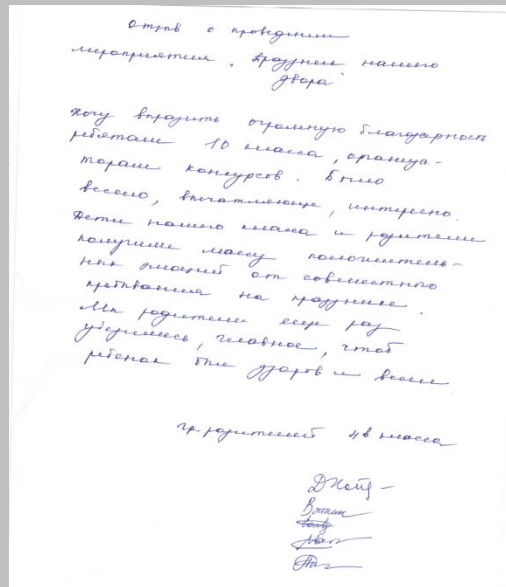 Отзыв о проведении
мероприятия "Праздник нашего
двора"
Хочу выразить огромную благодарность
ребятам 10 класса, организа-
торам конкурсов. Было
весело, впечатляюще, интересно.
Дети нашего класса и родители
получили массу положитель-
ных эмоций от совместного
пребывания на празднике.
Мы родители еще раз
убедились, главное, чтоб
ребенок был здоров и весел
гр. родителей 4в класса